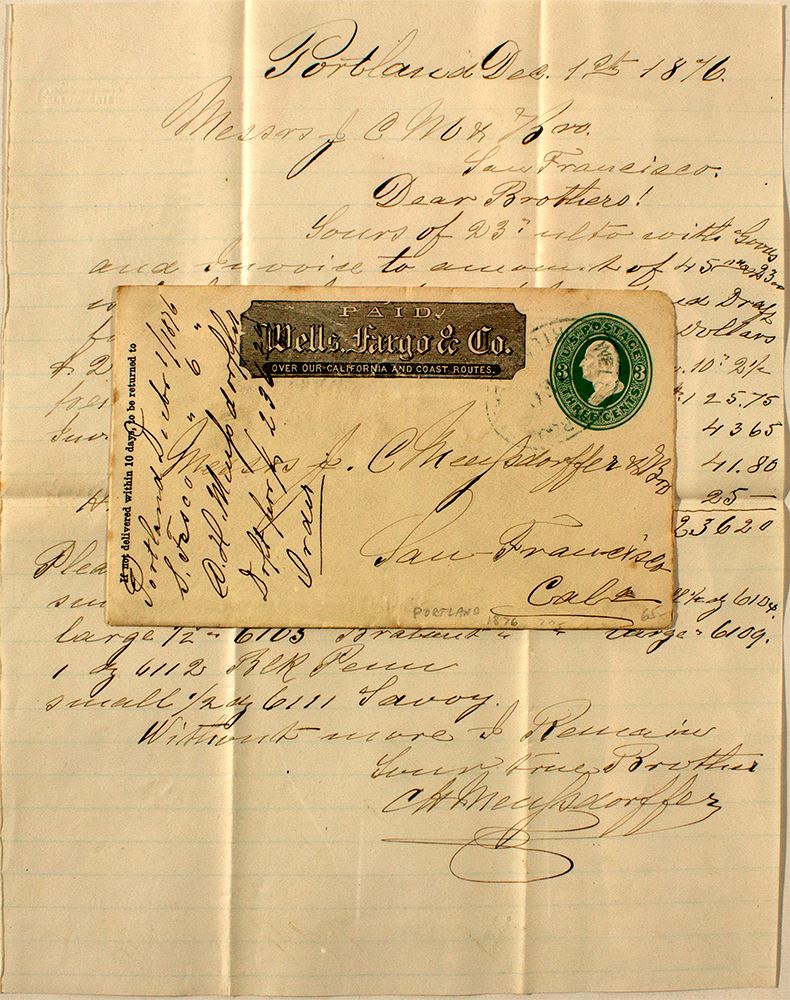 Portland Dec. 1st 1876.
Messrs J C M & Bro.
San Francisco.
Dear Brothers!
Yours of 23d ulto with Goods
and Invoice to amount of 45
Draft
Dollars
10" 2½
25.75
43 65
41.80
25—
236 20
Plea
large ½ " 6103 Brabant " " large " 6109.
1 dz 6112 Blk Penn
small ½ dz 6111 Savoy.
Without more I Remain
Your true Brother
CH Meussdorffer
PAID,
Wells, Fargo & Co.
OVER OUR CALIFORNIA AND COAST ROUTES.
U.S. POSTAGE
3 3
THREE CENTS
If not delivered within 10 days, to be returned to
Portland Decbr 1/1876
S. Fsco " 6 "
C. H. Meussdorffer
Order
Messrs J. C Meussdorffer & Bro
San Francisco
Cala
PORTLAND
1876
65-